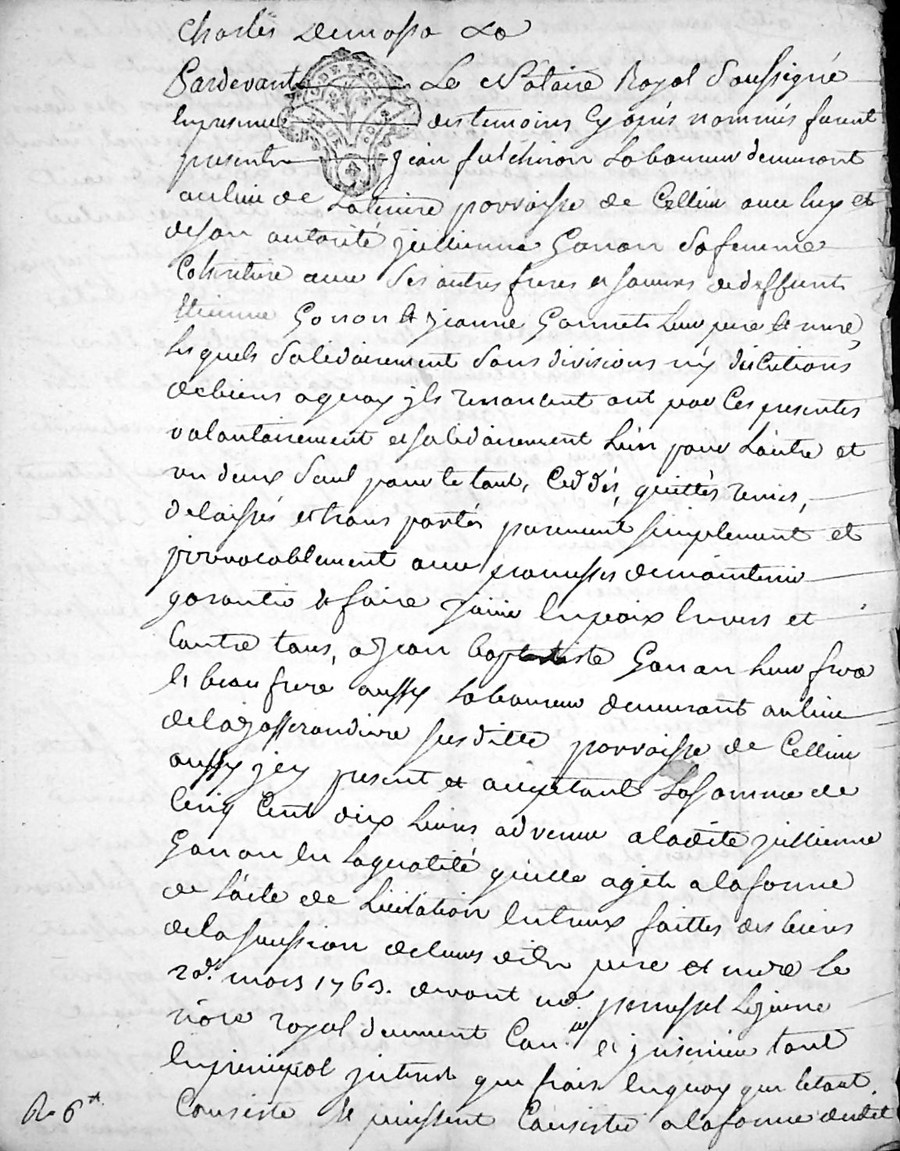 Charles Demosso
Pardevant Le Notaire Royal Soussigné
En presence des temoins Cy apres nommés furent
presentz jean futchiron Laboureur demeurant
au lieu de parroisse de Cellieu avec luy et
de son autorité jullienne Gonon Sa femme
Coheritiere avec Ses autres freres et soeurs de deffunt
Etienne Gonon & jeanne Gonnet Leur pere & mere
Lesquels Solidairement Sans division ny discution
de biens a quoy jls renoncent ont par Ces presentes
volontairement et solidairement L'un pour L'autre et
un deux Seul pour le tout, Ceddés, quittés remis,
delaissés et trans portés purement simplement et
jrrevocablement avec promesses de maintenir
garantir & faire jouir en paix Envers et
Contre tous, a jean baptiste Gonon Leur frere
& beau frere aussy Laboureur demeurant au lieu
de la jasserandiere susditte parroisse de Cellieu
aussy jcy present et acceptant La Somme de
Cinq Cent dix Livres advenue a ladite jullienne
Gonon En La qualité quelle agit a la forme
de L'acte de Licitation Entreux faittes des biens
de la sucession de leurs dits pere et mere le
mars 1763. devant me. Lejeune
nore royal duement Con.lé et jnsinué tant
En principal jnterest que frais En quoy que le tout
Consiste & puissent Consister a la forme dudit
Ro 6s